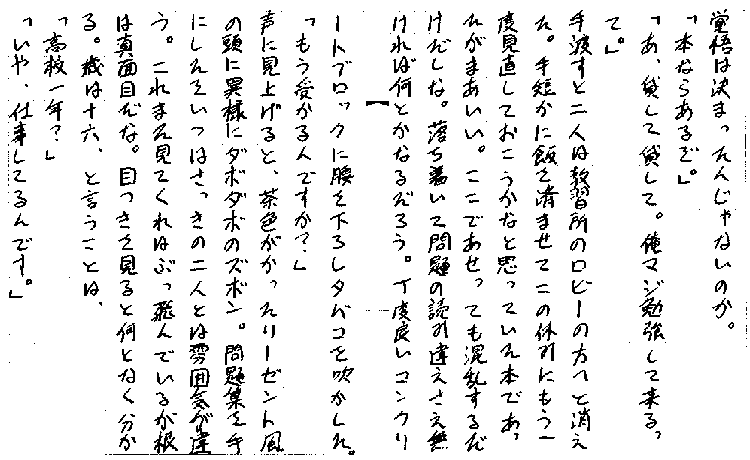 覚悟は決まったんじゃないのか。
「本ならあるぞ。」
「あ、貸して貸して。俺マジ勉強して来る。って。」
手渡すと二人は教習所のロビーの方へと消え
た。手短かに飯を済ませてこの休みにもう一
度見直しておこうかなと思っていた本であっ
たがまあいい。ここであせっても混乱するだ
けだしな。落ち着いて問題の読み違えさえ無
ければ何とかなるだろう。丁度良いコンクリ
ートブロックに腰を下ろしタバコを吹かした。
「もう受かるんですか？」
声に見上げると、茶色がかったリーゼント風
の頭に異様にダボダボのズボン。問題集を手
にしたそいつはさっきの二人とは雰囲気が違
う。これまた見てくれはぶっ飛んでいるが根
は真面目だな。目つきを見ると何となく分か
る。歳は十六、と言うことは、
「高校一年？」
「いや、仕事してるんです。」